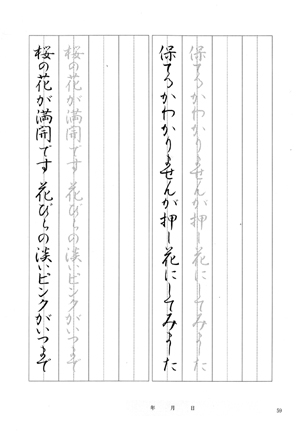 桜の花が満開です 花びらの淡いピンクがいつまで
桜の花が満開です 花びらの淡いピンクがいつまで
保てるかわかりませんが押し花にしてみました
保てるかわかりませんが押し花にしてみました
年 月 日
59